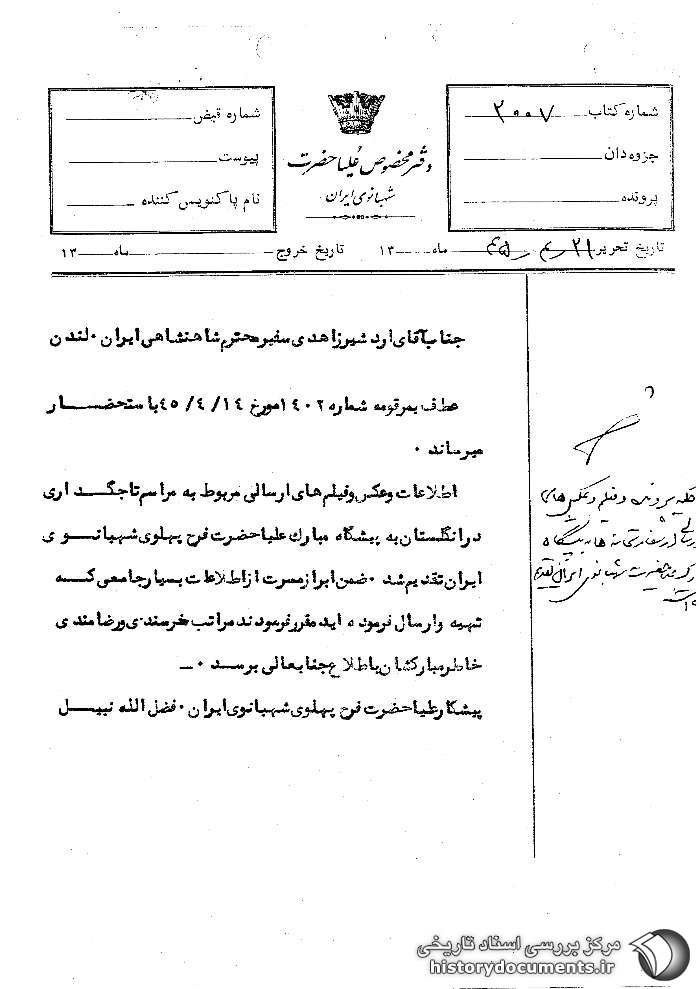 شماره کتاب ۲۰۰۷
جزوه دان
پرونده
دفتر مخصوص علیاحضرت
شهبانوی ایران
شماره قبض
پیوست
نام پاکنویس کننده
تاریخ تحریر ۲۱ ماه ۱۳ تاریخ خروج ماه ۱۳
جناب آقای اردشیر زاهدی سفیر محترم شاهنشاهی ایران ۰ لندن
عطف بمرقومه شماره ۱۴۰۲ مورخ ۱۴/ ۴/ ۴۵ باستحضار
میرساند ۰
اطلاعات وعکس وفیلم های ارسالی مربوط به مراسم تاجگذاری
درانگلستان به پیشگاه مبارك علیاحضرت فرح پهلوی شهبانوی
ایران تقدیم شد ۰ ضمن ابراز مسرت از اطلاعات بسیار جامعی که
تهیه وارسال فرموده اید مقرر فرمودند مراتب خرسندی ورضامندی
خاطر مبارکشان باطلاع جنابعالی برسد ۰ ـ
پیشکار علیاحضرت فرح پهلوی شهبانوی ایران ۰ فضل الله نبیل
پرونده و فیلم و عکس های
از سفارتخانه ها به پیشگاه
شهبانوی ایران تقدیم
مرکز بررسی اسناد تاریخی
historydocuments.ir